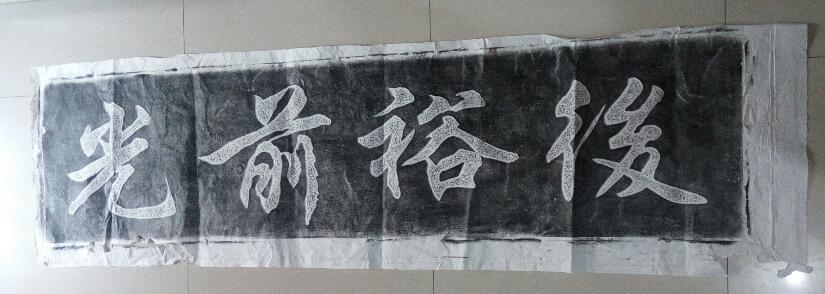 光前裕後